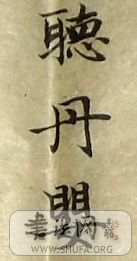 聽丹門
書法网
WWW.SHUFA.ORG